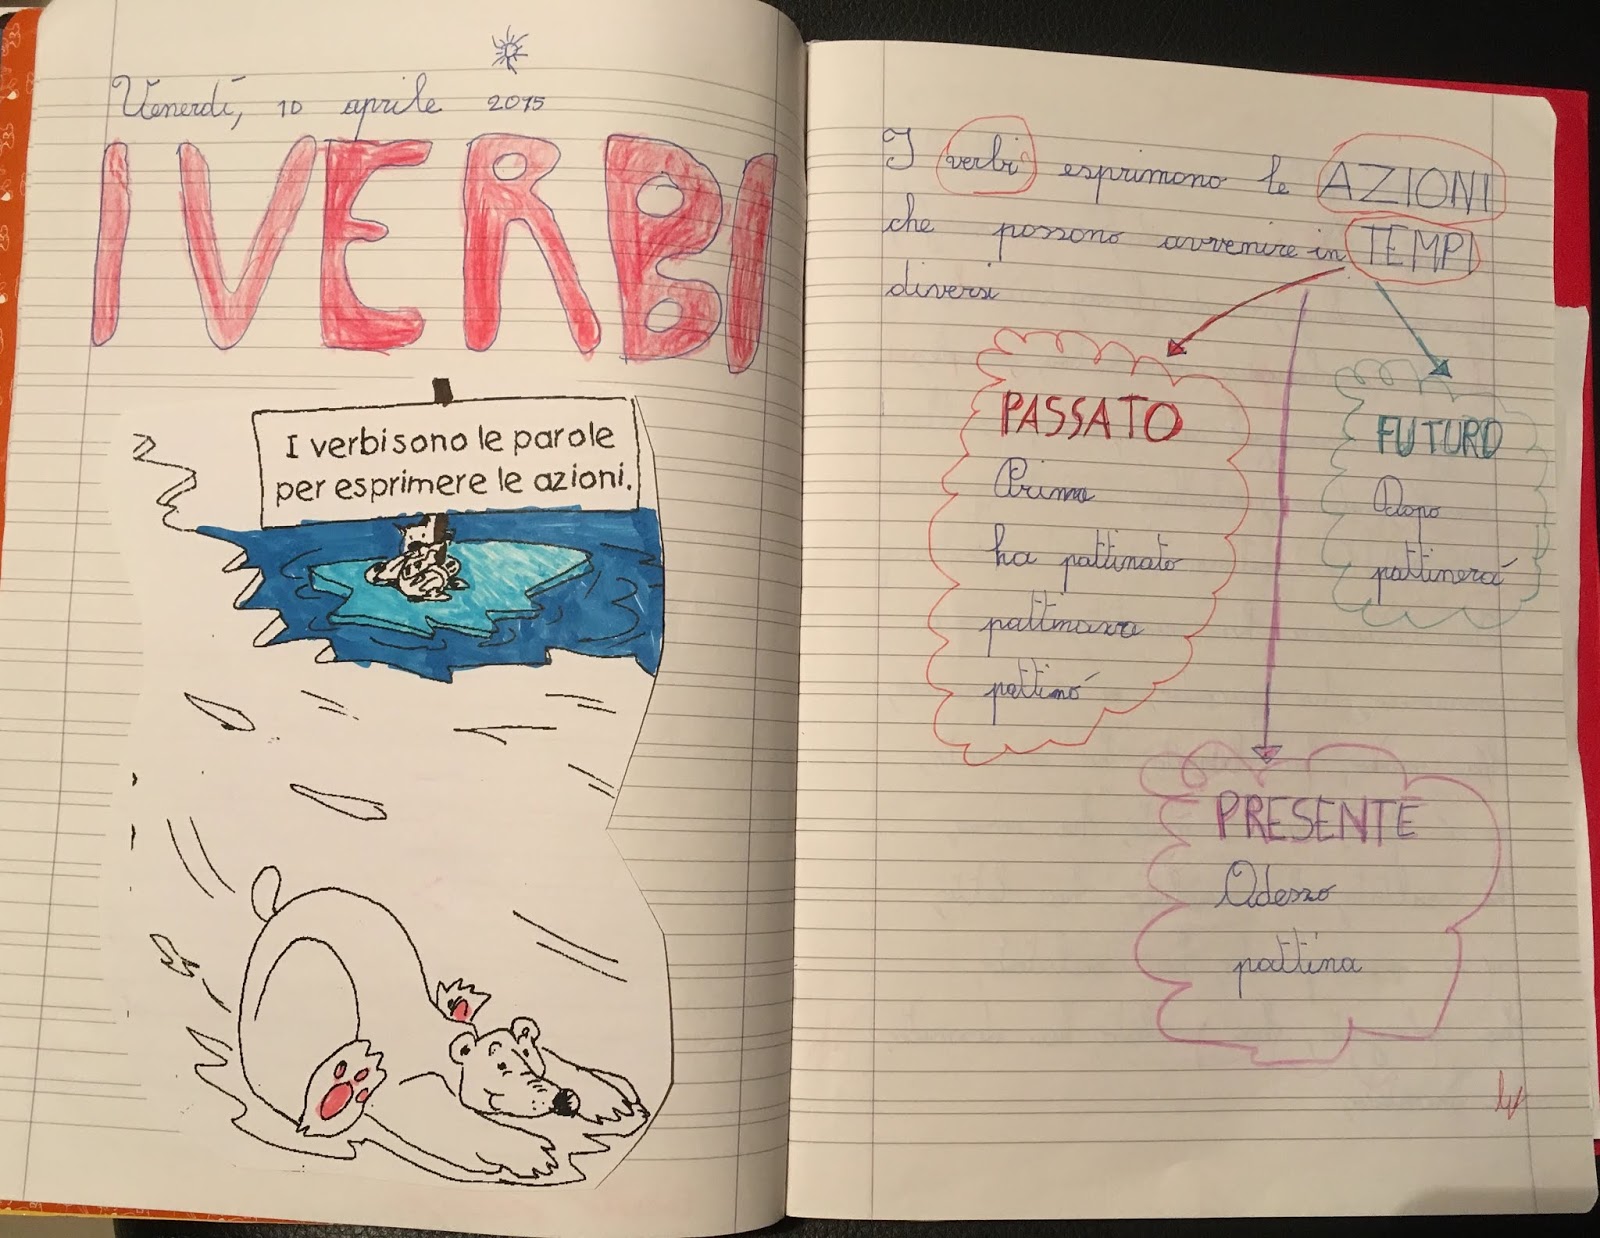 Venerdí, 10 aprile 2015
I VERBI
I verbi sono le parole
per esprimere le azioni.
I verbi esprimono le AZIONI
che possono avvenire in TEMPI
diversi
PASSATO
Prima
ha pattinato
pattinava
pattinó
FUTURO
Dopo
pattinerá
PRESENTE
Adesso
pattina